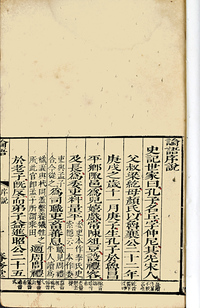 論語序說
史記世家曰孔子名丘字仲尼其先宋人
父叔梁紇母顏氏以魯襄公二十二年
庚戌之歲十一月庚子生孔子於魯昌
平鄉陬邑為兒嬉戲常陳俎豆設禮容
及長為委吏料量平委吏本作季氏史
吏與孟子合今從之為司職吏畜蕃息職見周禮
義與杙同蓋繫養犧牲之所此官即孟子所謂乘田適周問禮
於老子既反而弟子益進昭公二十五
論語
序說